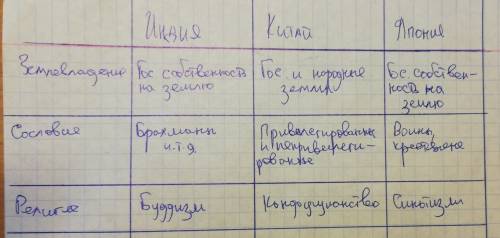 Индия Китай Япония
Землевладение Гос. собственность на землю Гос. и народные земли Гос. собственность на землю
Сословия Брахманы и.т.д. Привилегированные и непривилегированные Воины, крестьяне
Религия Буддизм Конфуцианство Синтоизм